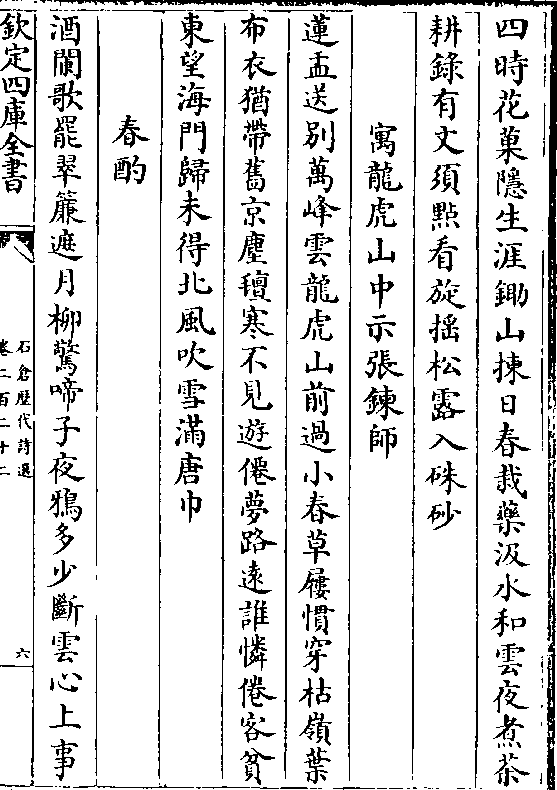 四時花菓隱生涯鋤山揀日春栽藥汲水和雲夜煮茶
耕錄有丈須點看旋揺松露入硃砂
寓龍虎山中示張鍊師
蓮盂送别萬峰雲龍虎山前過小春草屨慣穿枯嶺葉
布衣猶帶舊京塵氊寒不見遊僊夢路逺誰憐倦客貧
東望海門歸未得北風吹雪滿唐巾
春酌
酒闌歌罷翠簾遮月柳驚啼子夜鴉多少斷雲心上事
欽定四庫全書
石倉歴代詩選
卷二百二十二
六